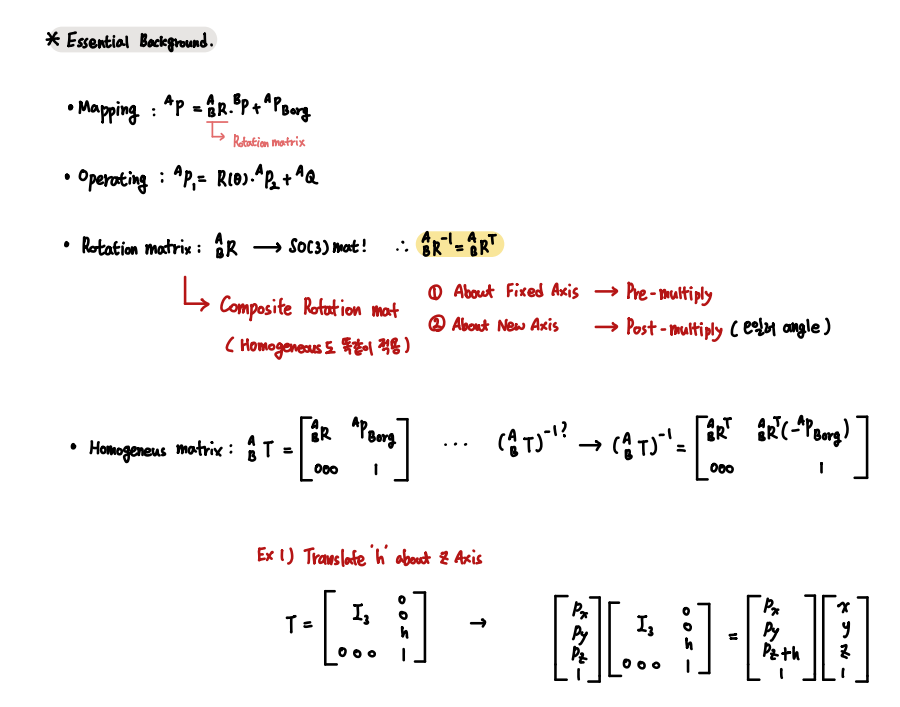 * Essential Background.
• Mapping : ᴬP = ᴬ_BR.ᴮP + ᴬP_Borg
↳ Rotation matrix
• Operating : ᴬP₁ = R(θ).ᴬP₂ + ᴬQ
• Rotation matrix : ᴬ_BR → SO(3) mat! ∴ ᴬ_BR⁻¹ = ᴬ_BRᵀ
↳ Composite Rotation mat ① About Fixed Axis → Pre-multiply
② About New Axis → Post-multiply (오일러 angle)
(Homogeneous도 똑같이 적용)
• Homogeneus matrix : ᴬ_BT = [ᴬ_BR ᴬP_Borg; 000 1] ... (ᴬ_BT)⁻¹? → (ᴬ_BT)⁻¹ = [ᴬ_BRᵀ ᴬ_BRᵀ(-ᴬP_Borg); 000 1]
Ex 1) Translate 'h' about z Axis
T = [I₃ 0 0 h; 0 0 0 1] → [Px; Py; Pz; 1] [I₃ 0 0 h; 0 0 0 1] = [Px; Py; Pz+h; 1] [x; y; z; 1]